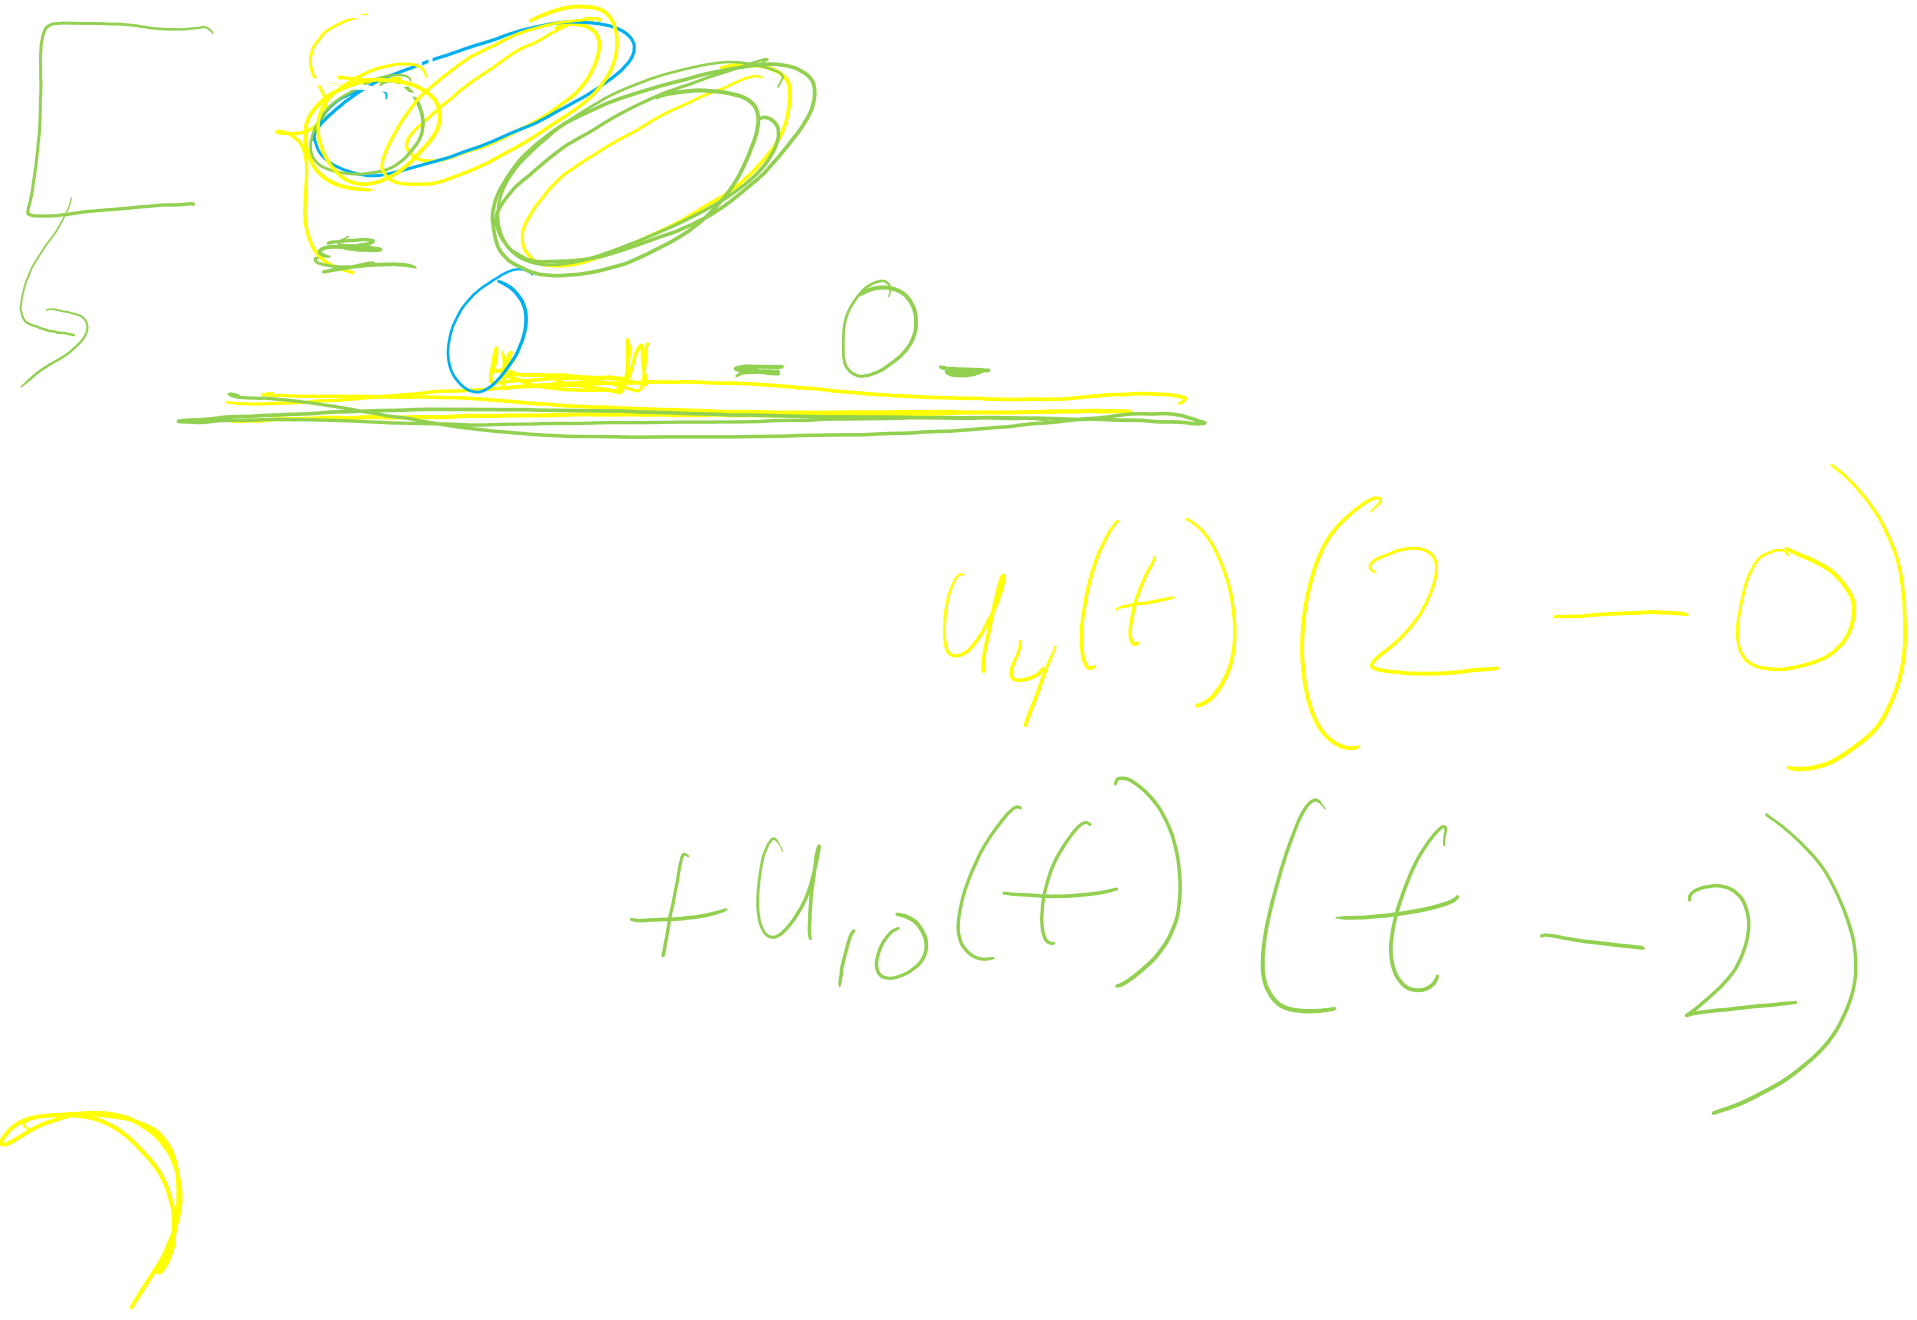 u₄(t)(2 - 0)
+ u₁₀(t)(t - 2)